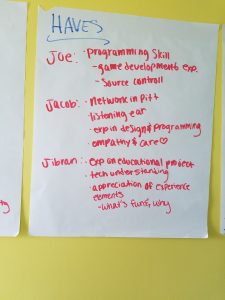 HAVES
Joe: · Programming Skill
- game development exp.
- Source controll
Jacob: · Network in Pitt
· listening ear
· exp in design & programming
· empathy & care ♡
Jibran: · Exp on educational project
· tech understanding
· appreciation of experience
elements
- what's fun & why